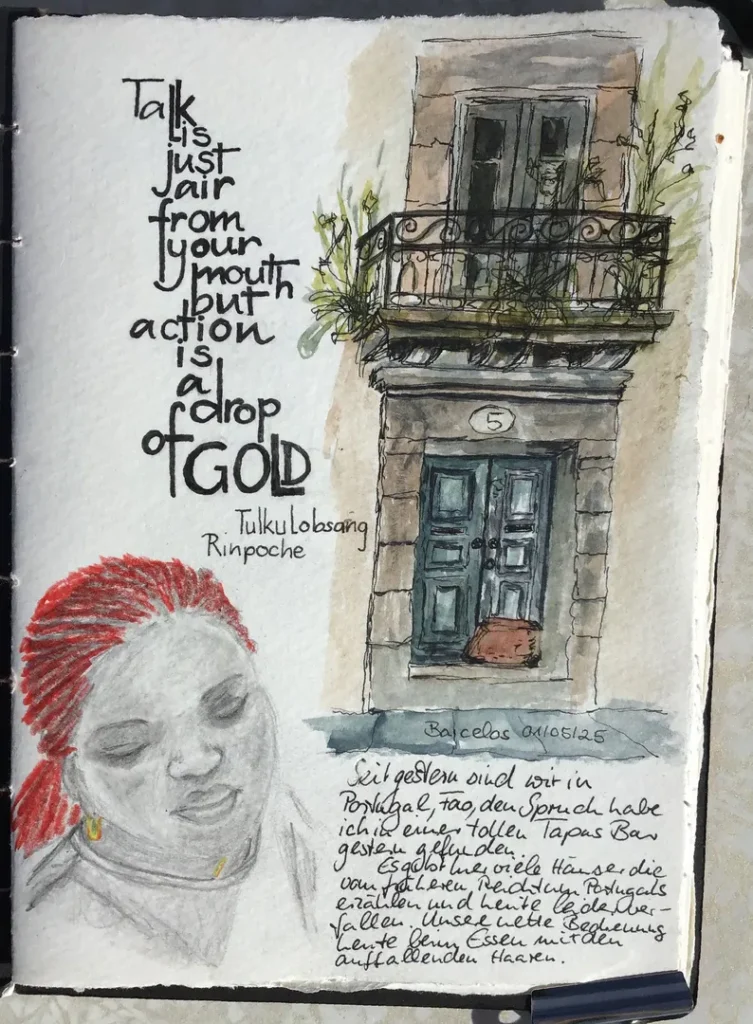 Talk
is
just
air
from
your
mouth
but
action
is
a
drop
of GOLD
Tulku Lobsang
Rinpoche
5
Bajcelos 01/05/25
Seit gestern sind wir in
Portugal, Fao, den Spruch habe
ich in einer tollen Tapas Bar
gestern gefunden.
Es gibt hier viele Häuser die
vom früheren Reichtum Portugals
erzählen und heute leider ver-
fallen. Unsere nette Bedienung
heute beim Essen mit den
auffallenden Haaren.